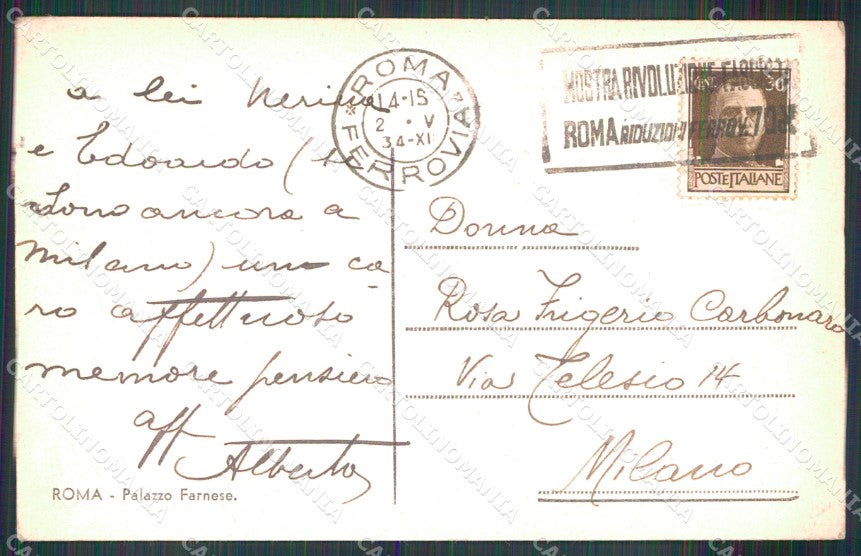 a lei Nerina
e Edoardo (se
sono ancora a
Milano) un ca
ro affettuoso
memore pensiero
aff
Alberto
ROMA - Palazzo Farnese.
ROMA
14-15
2 · V
34-XI
* FERROVIA
MOSTRA RIVOLUZIONE
ROMA RIDUZIONI FERROV. 70%
30
POSTE ITALIANE
Donna
Rosa Frigerio Carbonaro
Via Telesio 14
Milano
CARTOLINOMANIA